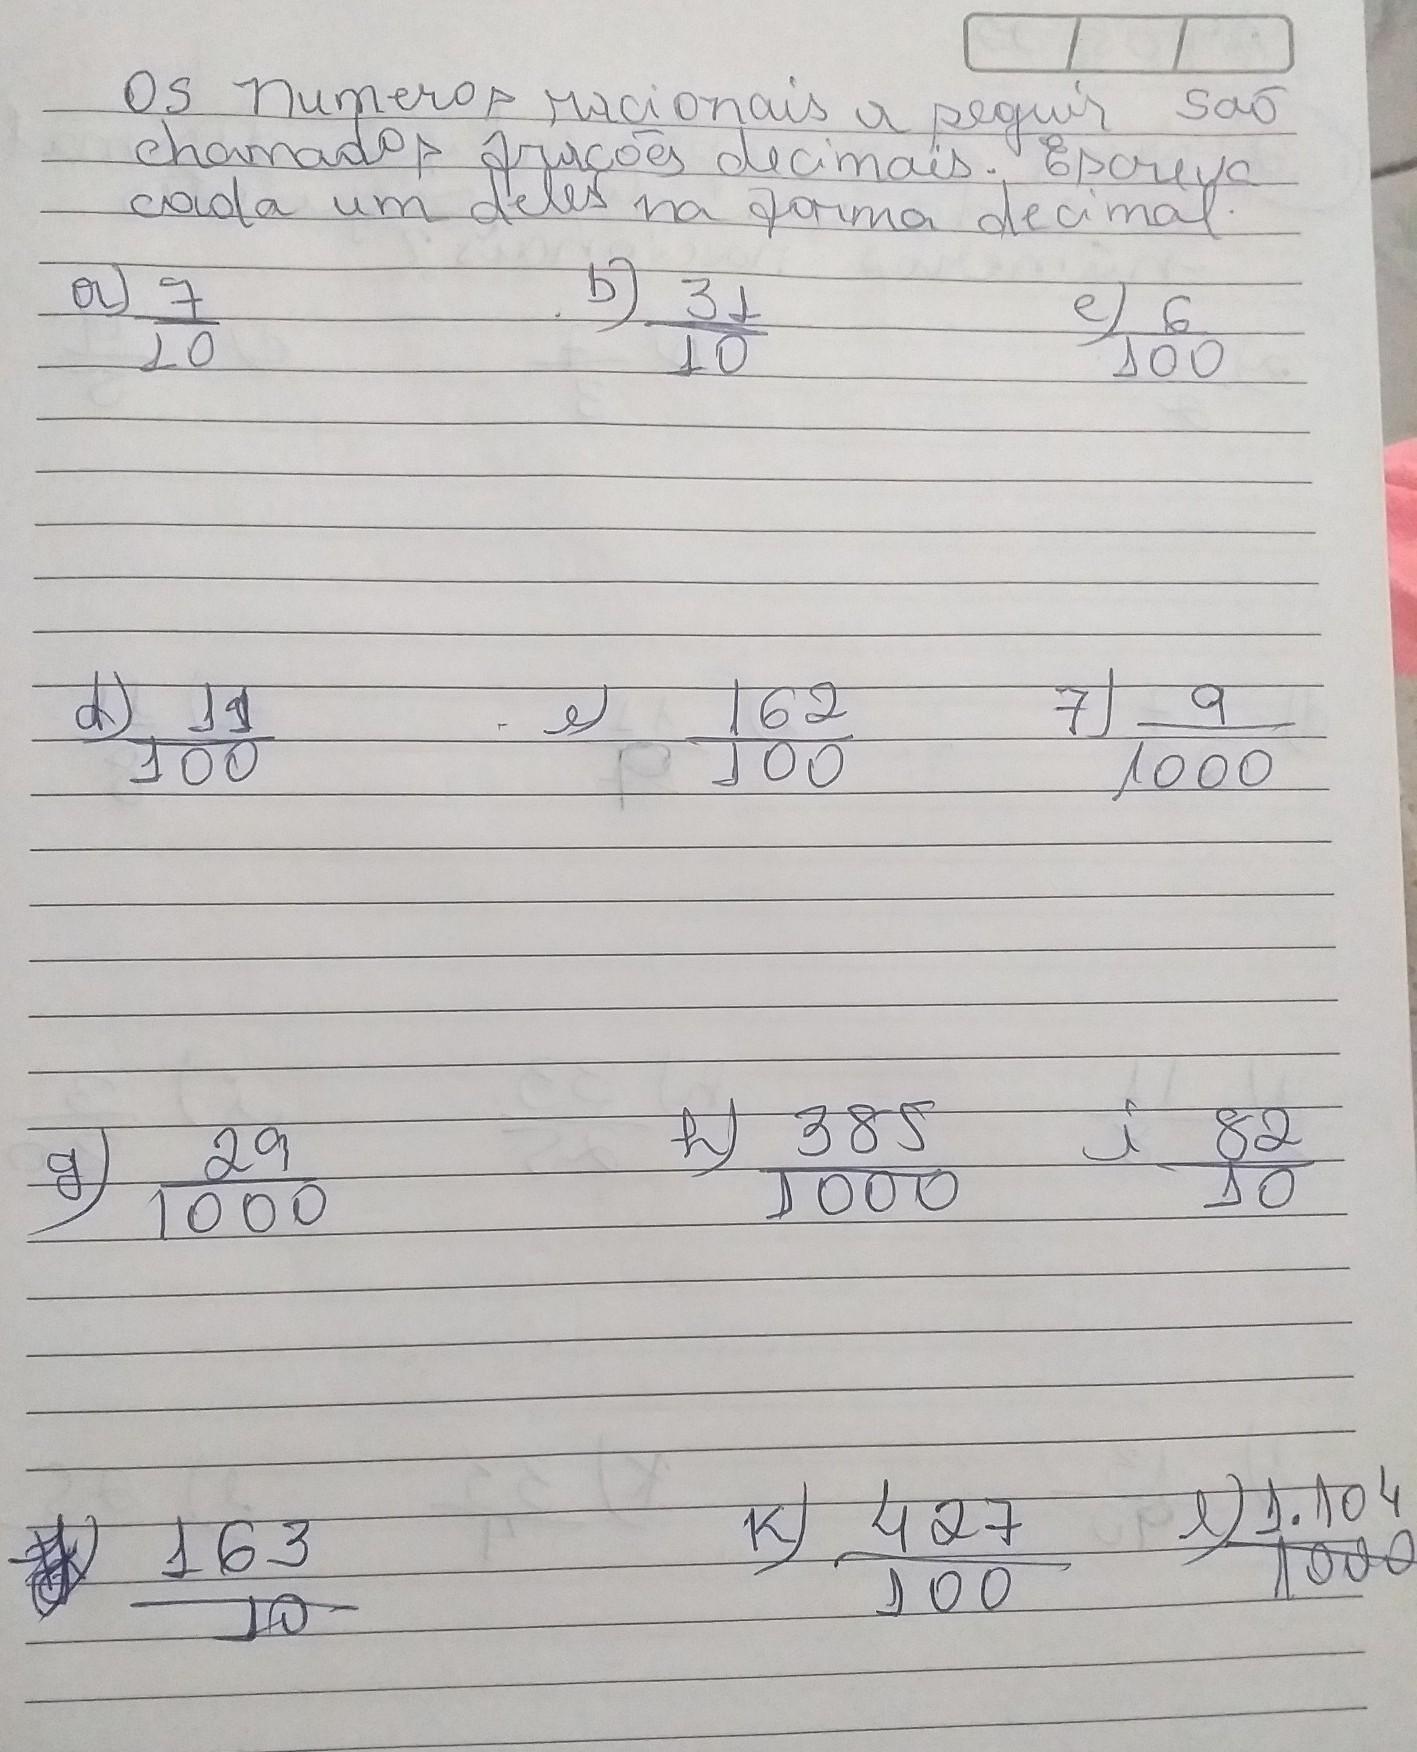 Os numeros racionais a seguir saõ
chamados frações decimais. Escreva
cada um deles na forma decimal.
a) 7/10 b) 31/10 c) 6/100
d) 11/100 e) 162/100 7) 9/1000
g) 29/1000 h) 385/1000 i 82/10
163/10 K) 427/100 l) 1.104/1000